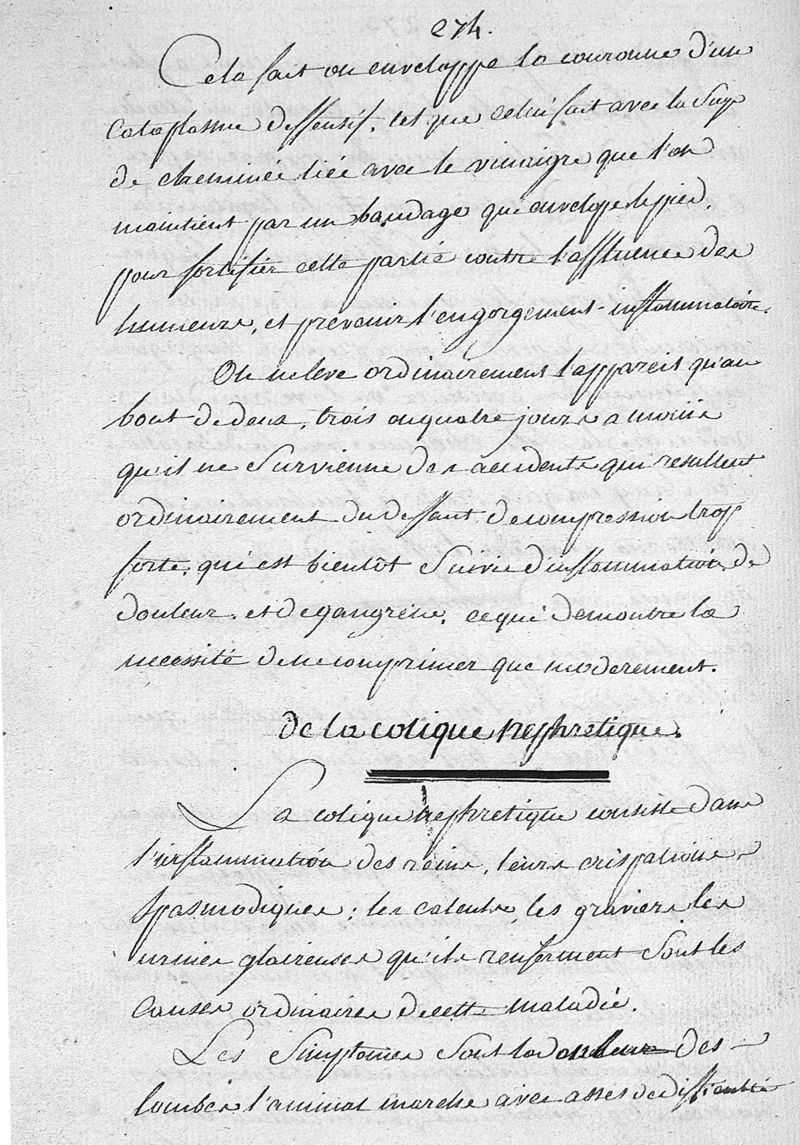 274.
Cela fait on enveloppe la couronne d'un
cataplasme deffensif, tel que celui fait avec la Suye
de cheminée liée avec le vinaigre que l'on
maintient par un bandage qui envelope le pied.
pour fortifier cette partie contre l'affluence des
humeurs, et prevenir l'engorgement inflammatoire.
On ne leve ordinairement l'appareil qu'au
bout de deux, trois ou quatre jours a moins
qu'il ne Survienne des accidents qui resultent
ordinairement du deffaut de compression trop
forte, qui est bientôt Suivie d'inflammation, de
douleur, et de gangrene, ce qui demontre la
necessité de ne comprimer que moderement.
de la colique nephretique.
La colique nephretique consiste dans
l'inflammation des reins, leurs crispations
Spasmodiques; les calculs, les graviers les
urines glaireuses qu'ils renferment Sont les
causes ordinaires de cette maladie.
Les Simptomes Sont la douleur des
lombes l'animal marche avec asses de difficulté